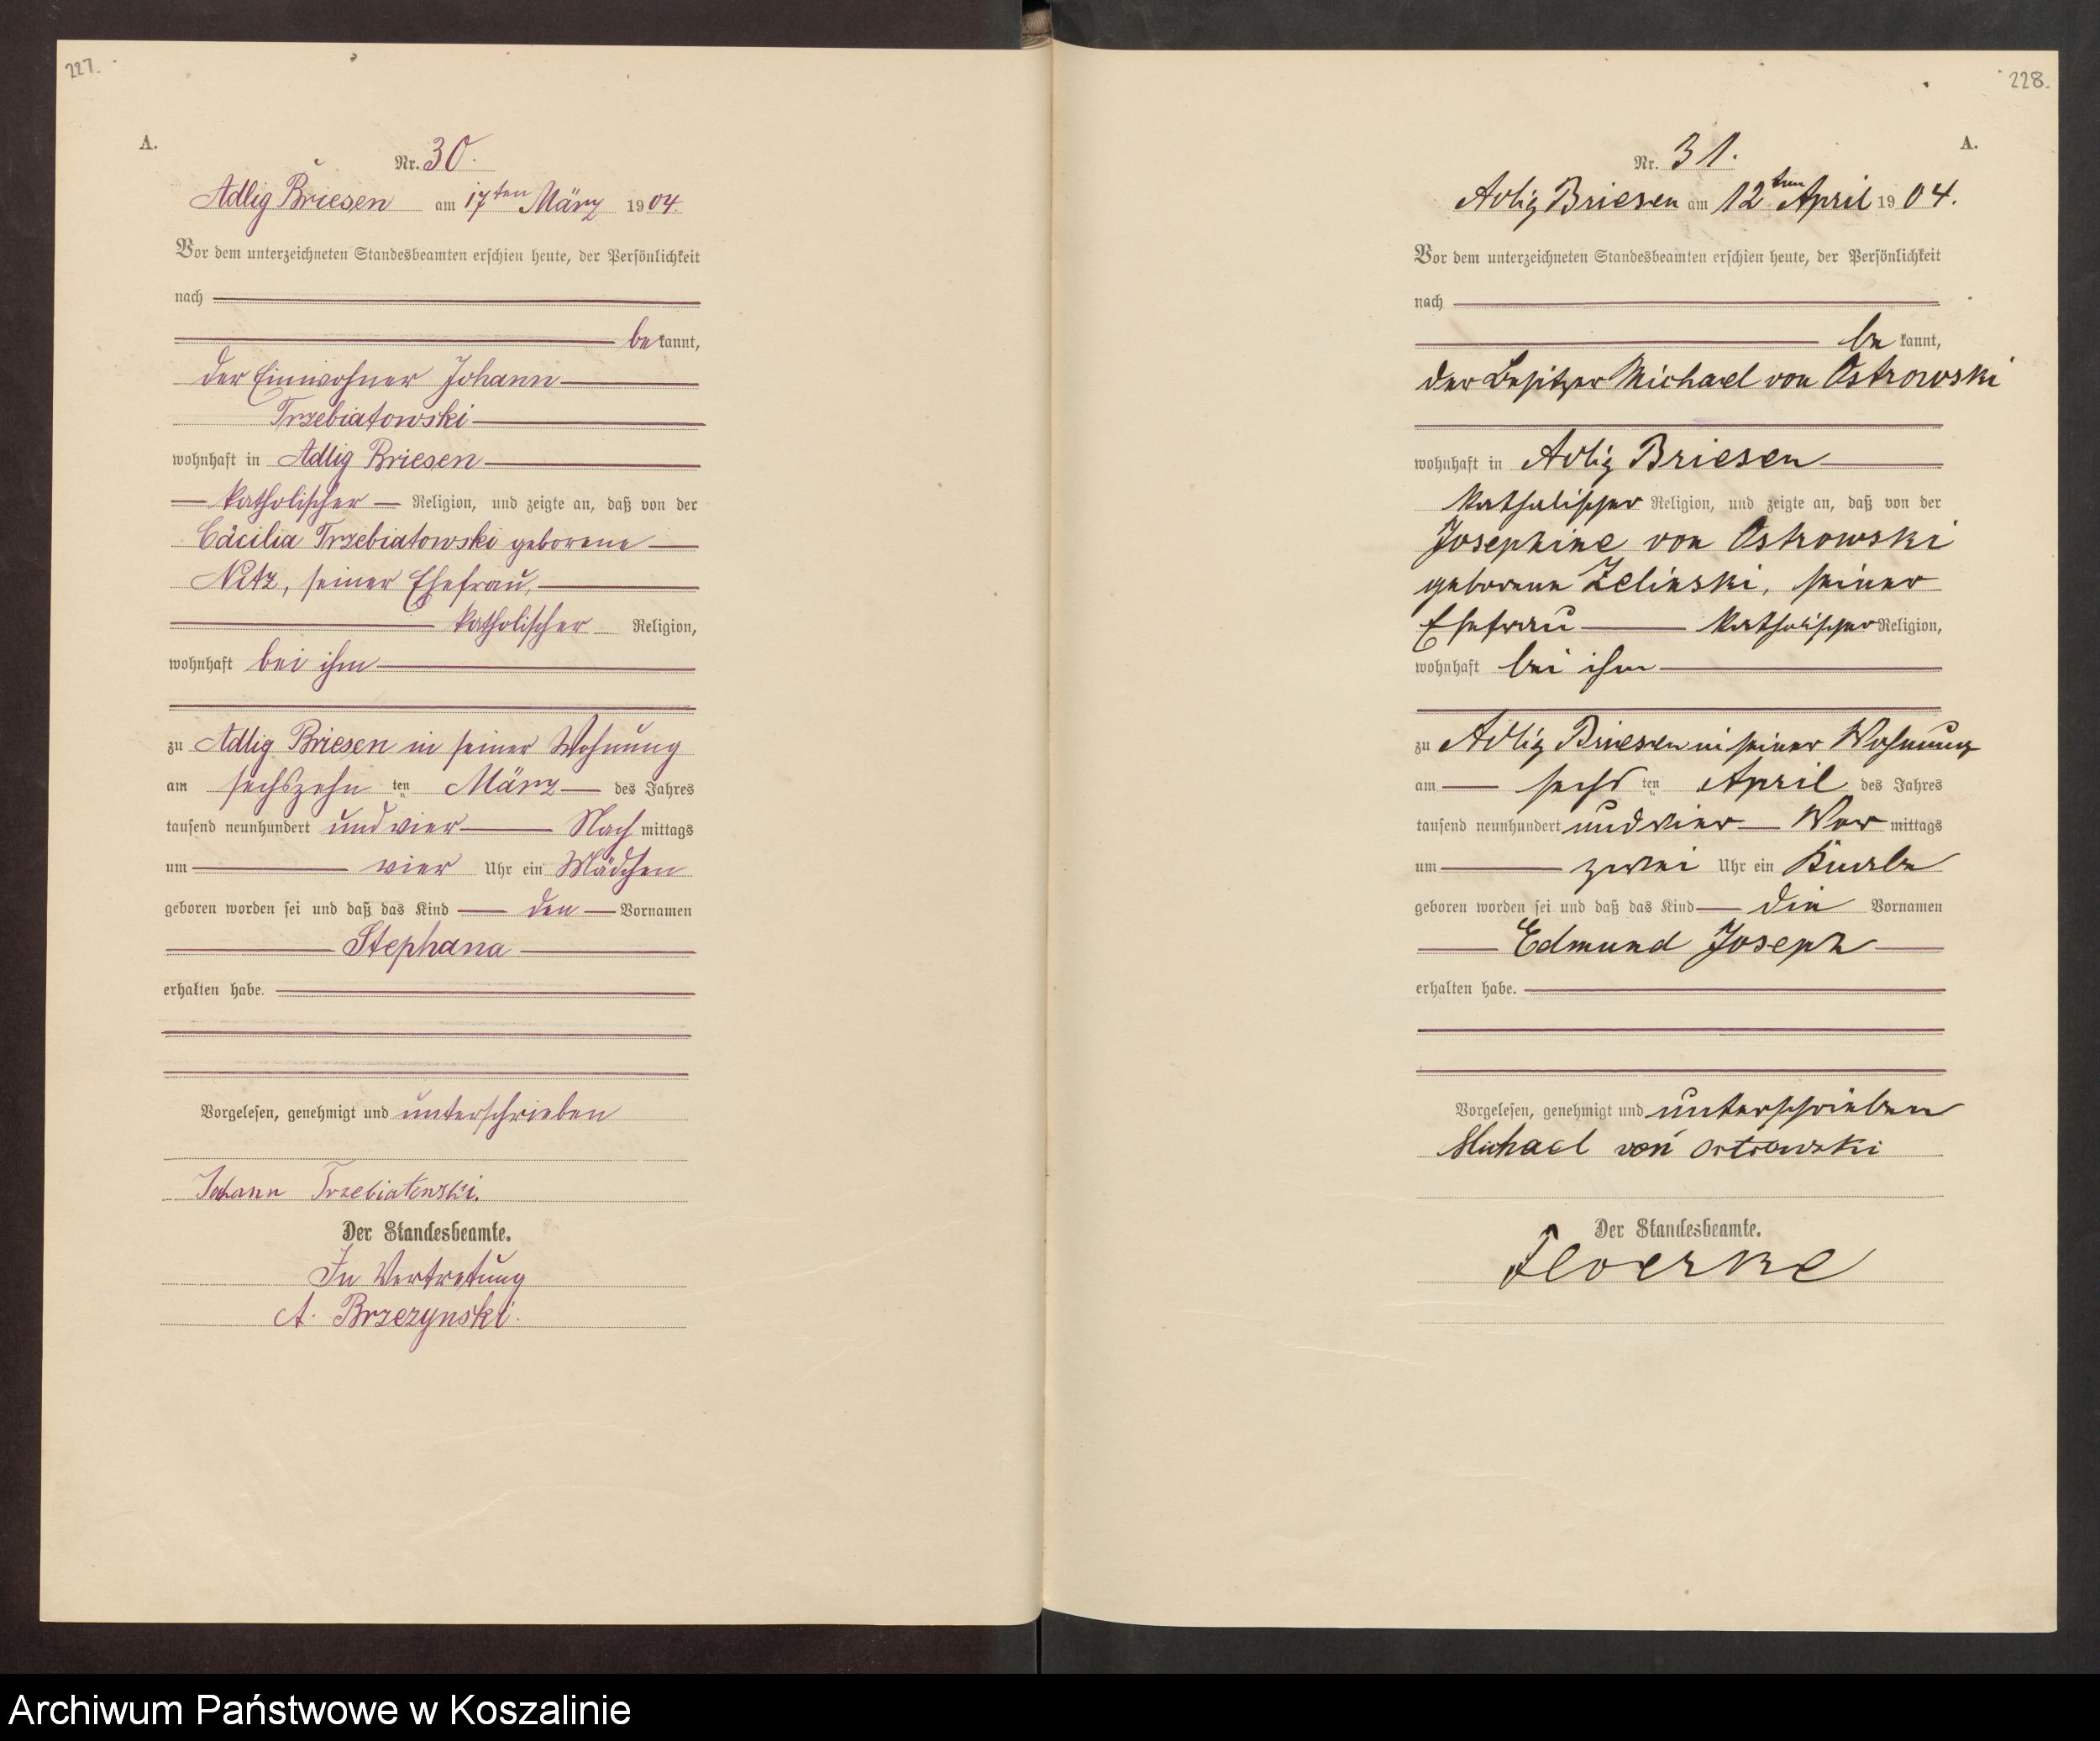 227.
A.
Nr. 30.
Adlig Briesen am 17ten März 1904.
Vor dem unterzeichneten Standesbeamten erschien heute, der Persönlichkeit
nach
bekannt,
der Einwohner Johann
Trzebiatowski
wohnhaft in Adlig Briesen
katholischer Religion, und zeigte an, daß von der
Cäcilia Trzebiatowski geborene
Nitz, seiner Ehefrau,
katholischer Religion,
wohnhaft bei ihm
zu Adlig Briesen in seiner Wohnung
am sechszehn ten März des Jahres
tausend neunhundert und vier Nachmittags
um vier Uhr ein Mädchen
geboren worden sei und daß das Kind den Vornamen
Stephana
erhalten habe.
Vorgelesen, genehmigt und unterschrieben
Johann Trzebiatowski.
Der Standesbeamte.
In Vertretung
A. Brzezynski.
228.
A.
Nr. 31.
Adlig Briesen am 12ten April 1904.
Vor dem unterzeichneten Standesbeamten erschien heute, der Persönlichkeit
nach
bekannt,
der Besitzer Michael von Ostrowski
wohnhaft in Adlig Briesen
katholischer Religion, und zeigte an, daß von der
Josephine von Ostrowski
geborene Zelinski, seiner
Ehefrau katholischer Religion,
wohnhaft bei ihm
zu Adlig Briesen in seiner Wohnung
am sechs ten April des Jahres
tausend neunhundert und vier Vormittags
um zwei Uhr ein Knabe
geboren worden sei und daß das Kind die Vornamen
Edmund Joseph
erhalten habe.
Vorgelesen, genehmigt und unterschrieben
Michael von Ostrowski
Der Standesbeamte.
Floerke
Archiwum Państwowe w Koszalinie